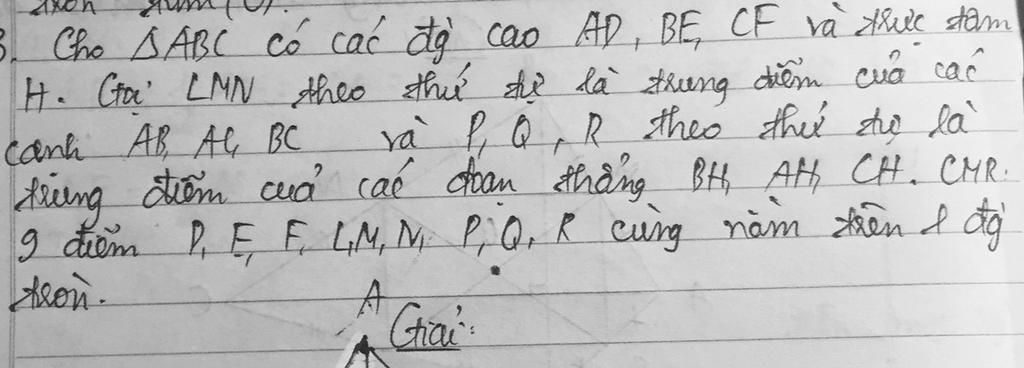 3. Cho ΔABC có các đg cao AD, BE, CF và trực tâm
H. Gọi LMN theo thứ tự là trung điểm của các
cạnh AB, AC, BC và P, Q, R theo thứ tự là
trung điểm của các đoạn thẳng BH, AH, CH. CMR:
9 điểm D, E, F, L, M, N, P, Q, R cùng nằm trên 1 đg
tròn.
A
Giải: